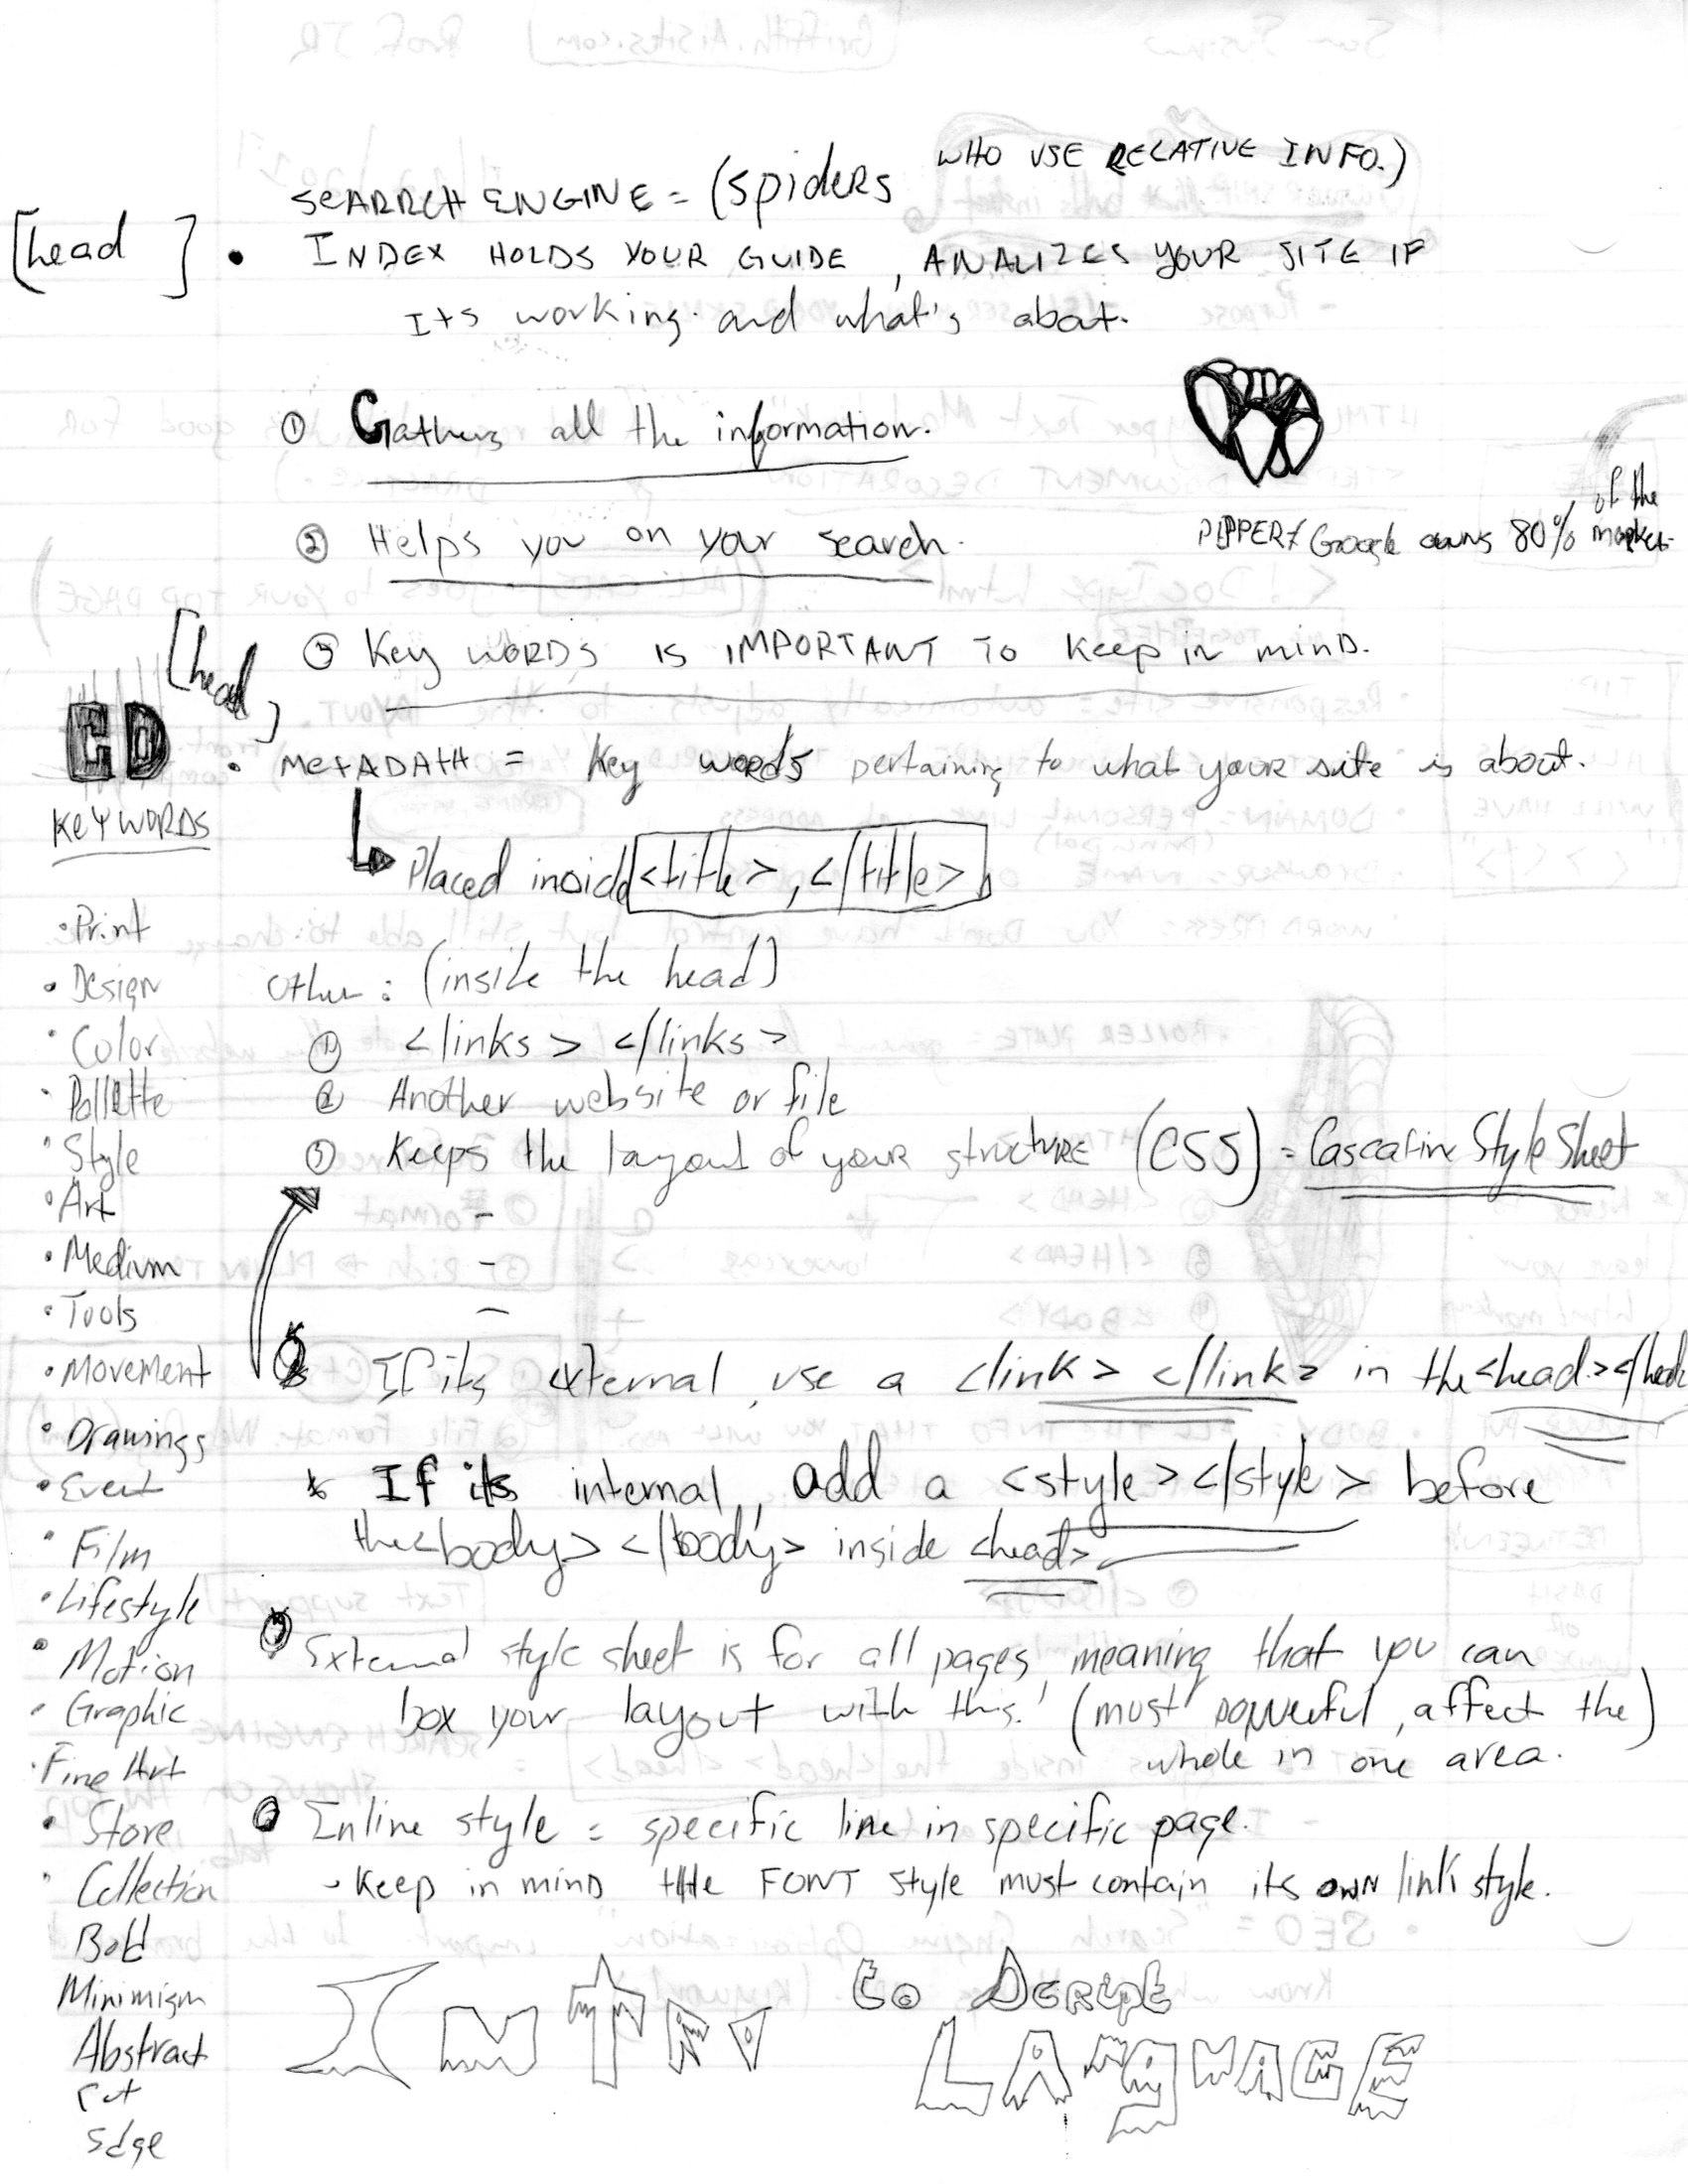 WHO USE RELATIVE INFO.)
SEARRCH ENGINE = (spiders
[head]
• INDEX HOLDS YOUR GUIDE, ANALIZES YOUR SITE IF
Its working. and what's about.
① Gathers all the information.
② Helps you on your search.
of the
Google owns 80% market
[head]
③ Key WORDS IS IMPORTANT TO Keep in minD.
• MetADAtA = Key words pertaining to what your site is about.
Placed inside <title>, </title>
Other: (inside the head)
① <links> </links>
② Another website or file
③ Keeps the layout of your structure (CSS) = Cascatine Style Sheet
-
-
-
* If its external, use a <link> </link> in the <head></head
* If its internal, add a <style></style> before
the <body> </body> inside <head>
External style sheet is for all pages, meaning that you can
box your layout with this! (must powerful, affect the)
whole in one area.
Inline style = specific line in specific page.
- Keep in minD tHe FONT style must contain its OWN link style.
INTRO
LANGUAGE
KEYWORDS
• Print
• Design
• Color
• Pollette
• Style
• Art
• Medium
• Tools
• Movement
• Drawings
• Event
• Film
• Lifestyle
• Motion
• Graphic
• Fine Art
• Store
• Collection
Bold
Minimism
Abstract
Edge